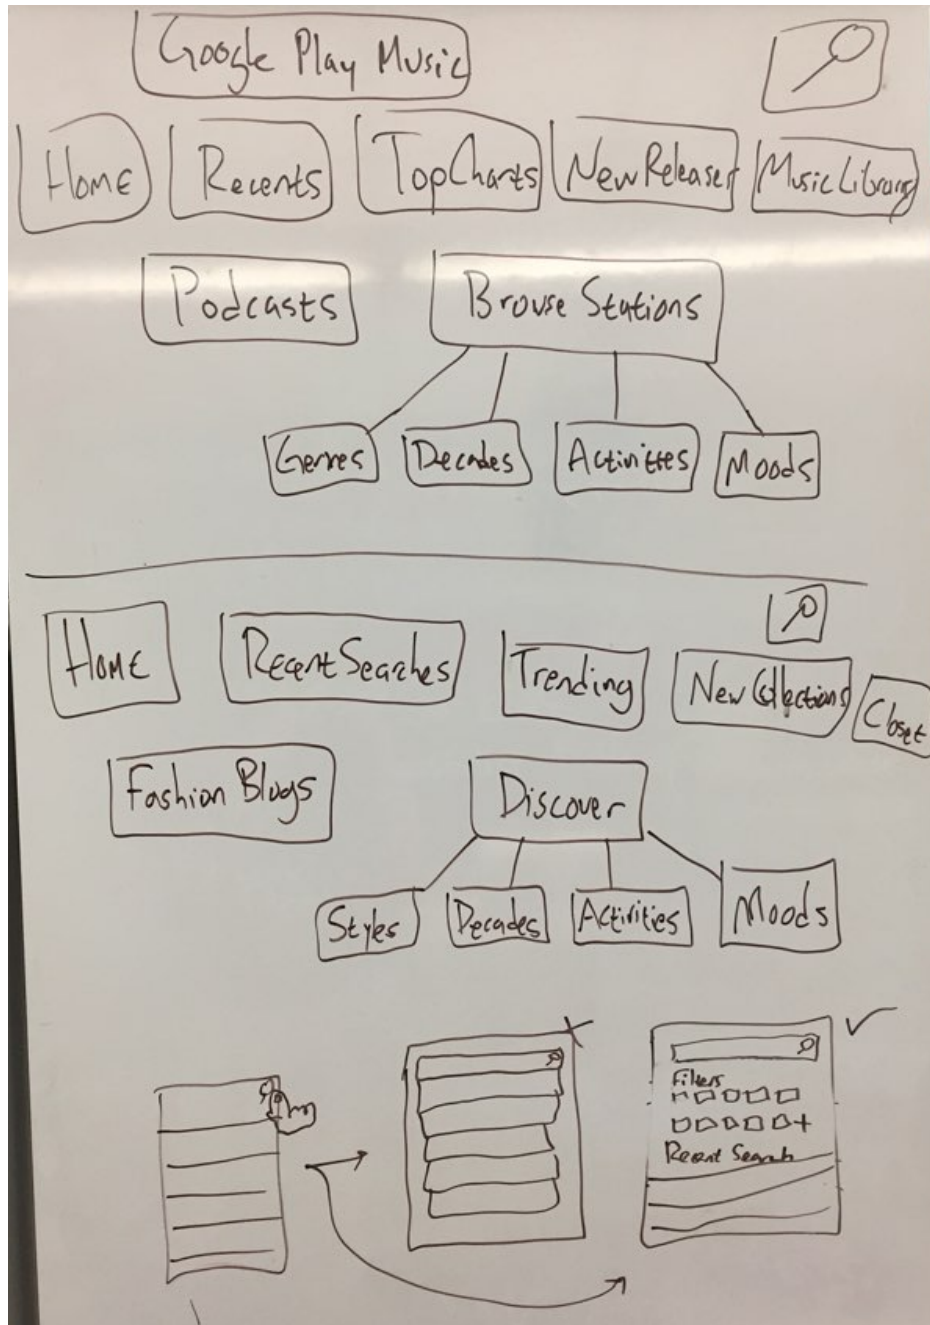 Google Play Music
Home Recents TopCharts New Releases Music Library
Podcasts Browse Stations
Genres Decades Activities Moods
Home Recent Searches Trending New Collections Closet
Fashion Blogs Discover
Styles Decades Activities Moods
Filters
Recent Search